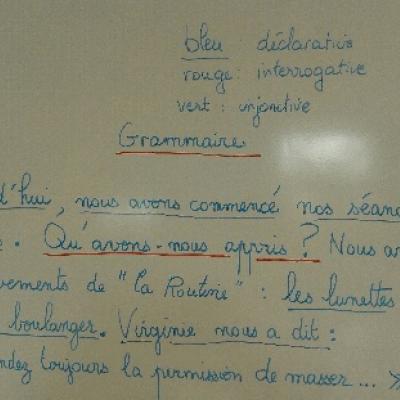 bleu : déclarative
rouge : interrogative
vert : injonctive
Grammaire
d'hui, nous avons commencé nos séan
e. Qu'avons-nous appris ? Nous a
vements de "la Routine" : les lunettes
boulanger. Virginie nous a dit :
ndez toujours la permission de masser ... »